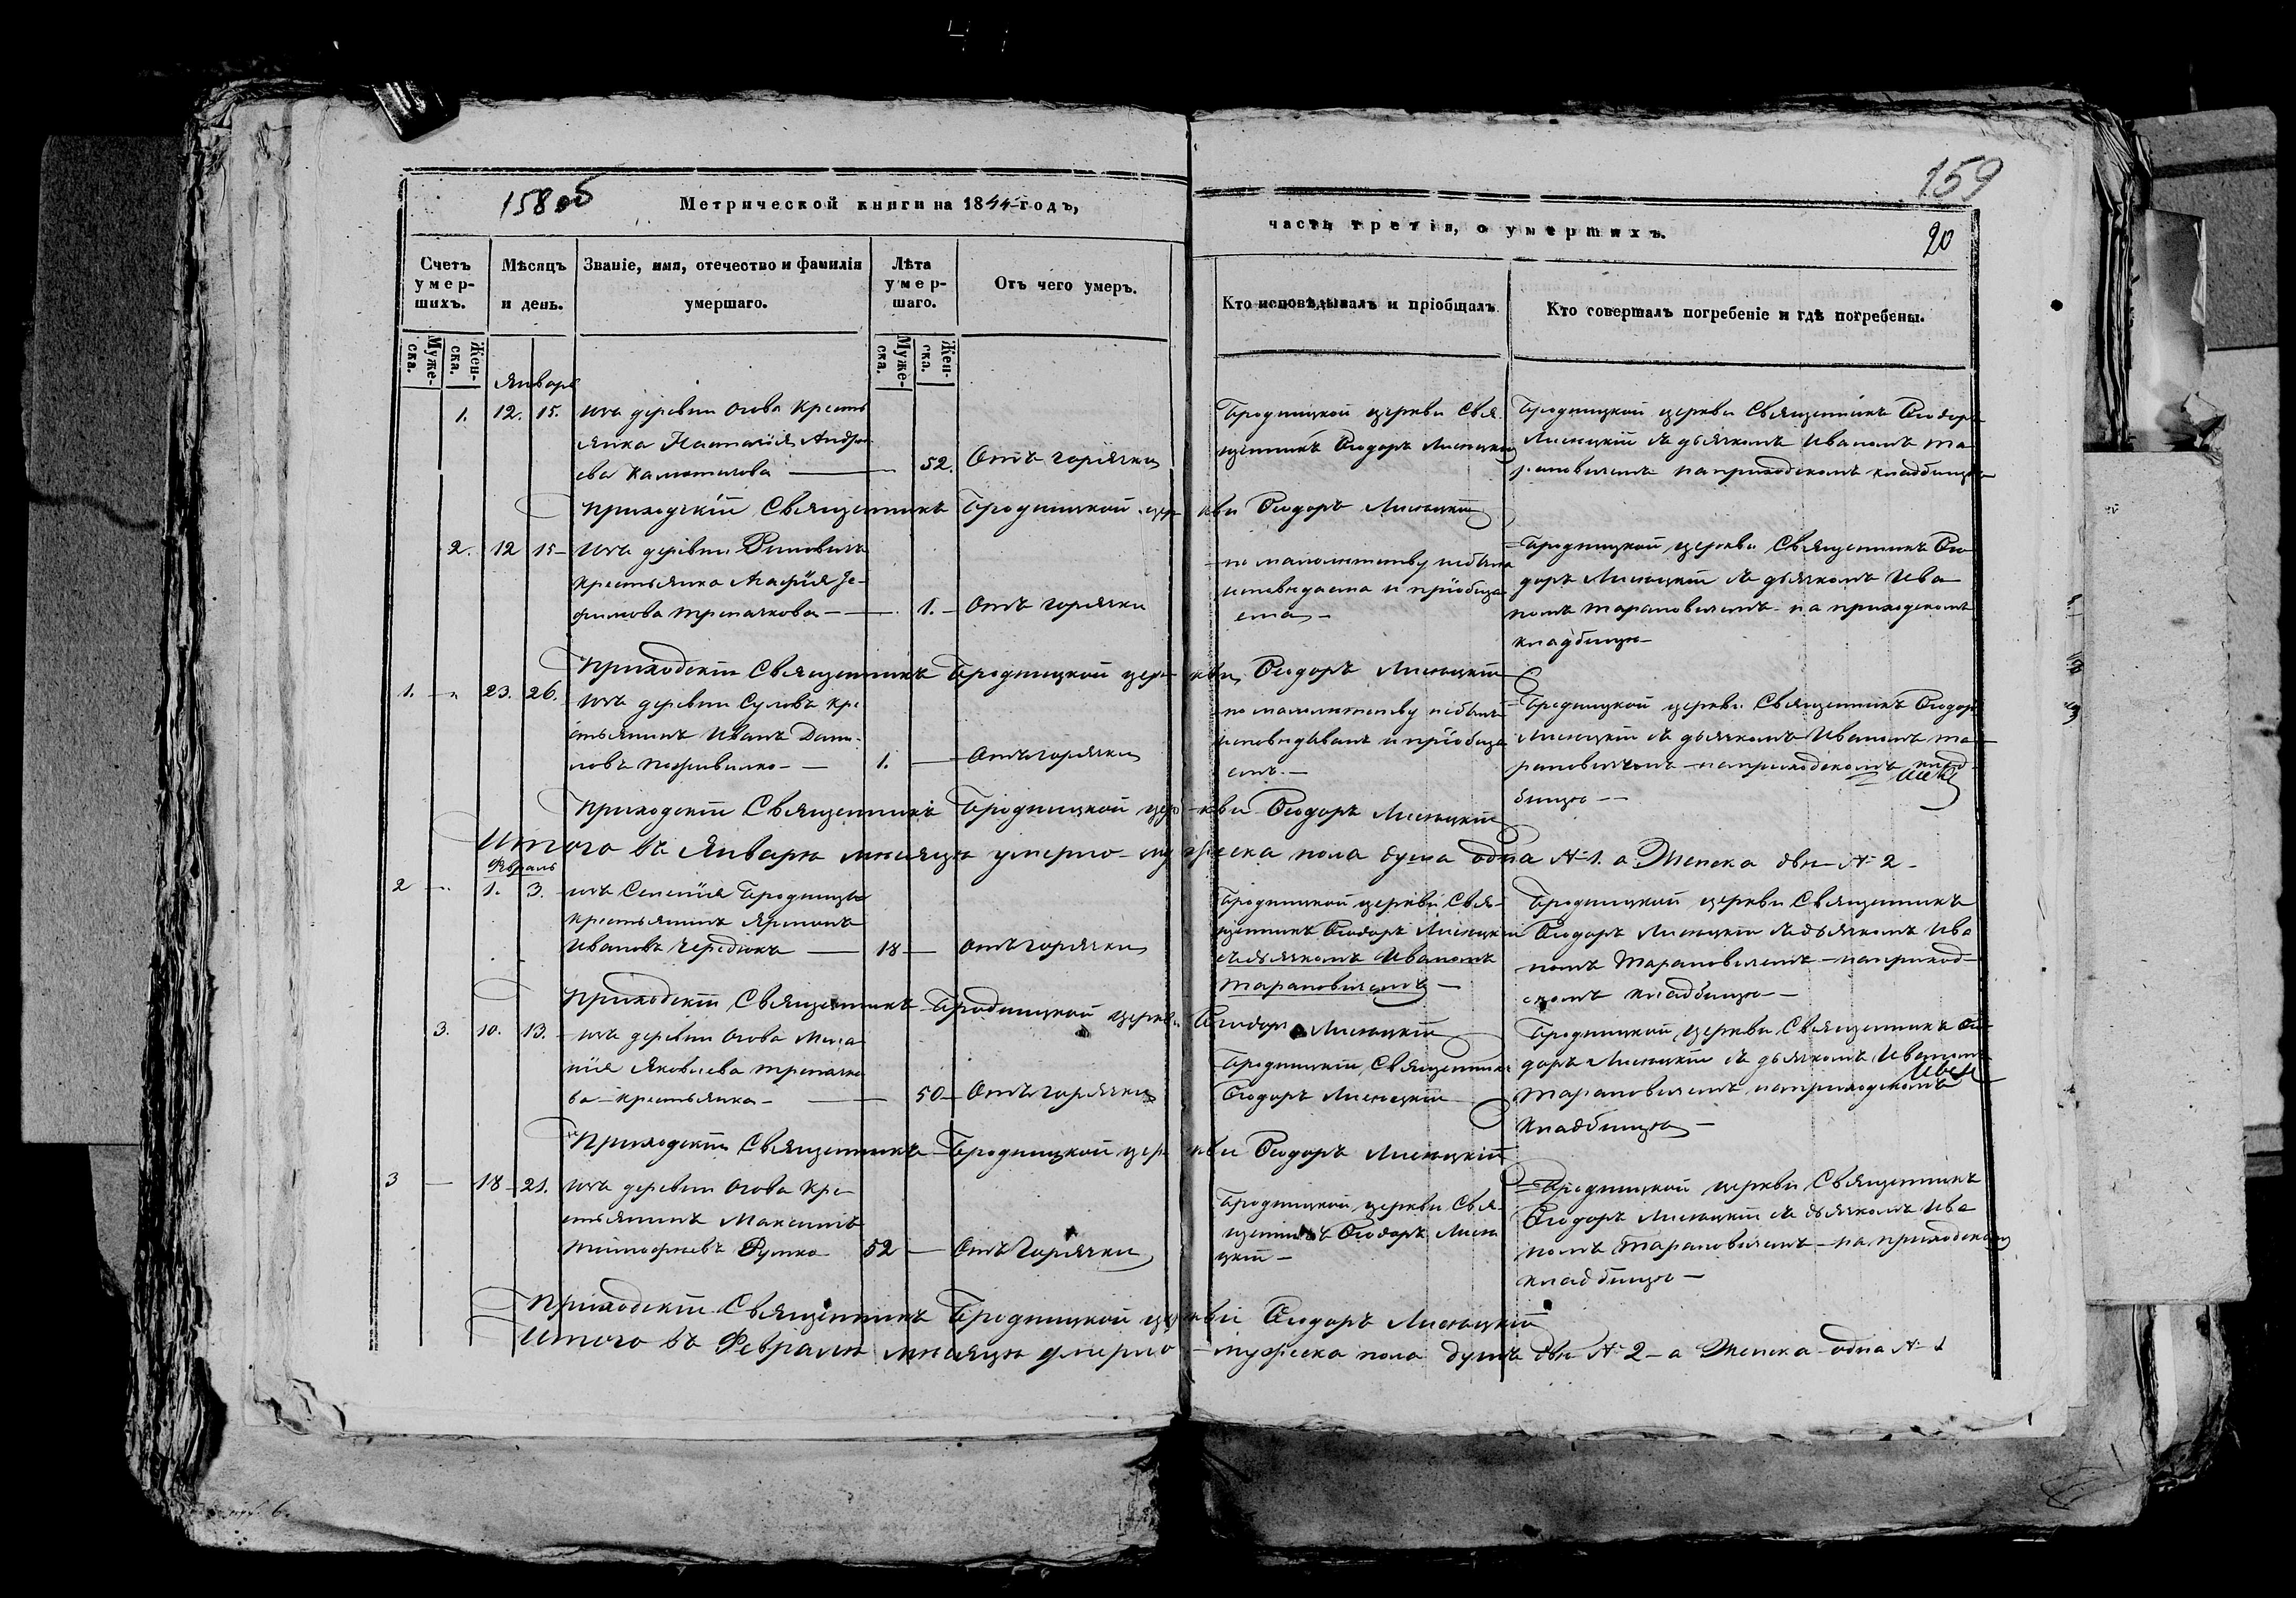 158 об
Метрической книги на 1844 годъ,
159
часть третія, о умершихъ.
20
Счетъ умер-шихъ.
Мѣсяцъ и день.
Званіе, имя, отечество и фамилія умершаго.
Лѣта умер-шаго.
Отъ чего умеръ.
Кто исповѣдывалъ и пріобщалъ
Кто совершалъ погребеніе и гдѣ погребены.
Муже-ска.
Жен-ска.
Муже-ска.
Жен-ска.
Январь
1. 12. 15. изъ деревни Огова Кресть
янка Настасія Андре
ева
52. Отъ горячки
Бродницкой церкви Свя
щенникъ Ѳеодоръ Лисицкій
Бродницкой церкви Священникъ Ѳеодоръ
Лисицкій съ дьячкомъ Иваномъ Та
рановичемъ на приходскомъ кладбищѣ
Приходскій Священникъ Бродницкой церкви Ѳеодоръ Лисицкій
2. 12 15 Изъ деревни
Крестьянка Агафія Іе-
фимова Трепачкова
1. Отъ горячки
по малолетству небыла
исповедаема и пріобща
ема
Бродницкой церкви Священникъ Ѳео
доръ Лисицкій съ дьячкомъ Ива
номъ Тарановичемъ на приходскомъ
кладбищѣ
Приходскій Священникъ Бродницкой церкви Ѳеодоръ Лисицкій
1. 23. 26. изъ деревни Кре
стьянинъ Иванъ Дани-
ловъ
1. Отъ горячки
по малолетству небылъ
исповедыванъ и пріобща
емъ
Бродницкой церкви Священникъ Ѳеодоръ
Лисицкій съ дьячкомъ Иваномъ Та
рановичемъ на приходскомъ клад-
бищѣ
Приходскій Священникъ Бродницкой церкви Ѳеодоръ Лисицкій
Итого въ Январѣ месяцѣ умерло мужеска пола душа одна № 1. а Женска двѣ № 2
Февраль
2 1. 3. изъ Селенія Бродницы
Крестьянинъ
Ивановъ Чередюкъ
18 Отъ горячки
Бродницкой церкви Свя-
щенникъ Ѳеодоръ Лисицкій
съ дьячкомъ Иваномъ
Тарановичемъ
Бродницкой церкви Священникъ
Ѳеодоръ Лисицкій съ дьячкомъ Ива
номъ Тарановичемъ на приход-
скомъ кладбищѣ
Приходскій Священникъ Бродницкой церкви Ѳеодоръ Лисицкій
3. 10. 13. изъ деревни Огова Мела
нія Яковлева Трепачко
ва крестьянка
50 Отъ горячки
Бродницкій Священникъ
Ѳеодоръ Лисицкій
Бродницкой церкви Священникъ Ѳео
доръ Лисицкій съ дьячкомъ Иваномъ
Тарановичемъ на приходскомъ
кладбищѣ
Приходскій Священникъ Бродницкой церкви Ѳеодоръ Лисицкій
3 18 21. изъ деревни Огова Кре-
стьянинъ Максимъ
Тимофеевъ
52 Отъ горячки
Бродницкой церкви Свя-
щенникъ Ѳеодоръ Лиси
цкій
Бродницкой церкви Священникъ
Ѳеодоръ Лисицкій съ дьячкомъ Ива
номъ Тарановичемъ на приходскомъ
кладбищѣ
Приходскій Священникъ Бродницкой церкви Ѳеодоръ Лисицкій
Итого въ Февралѣ месяцѣ умерло мужеска пола душъ двѣ № 2 а Женска одна № 1